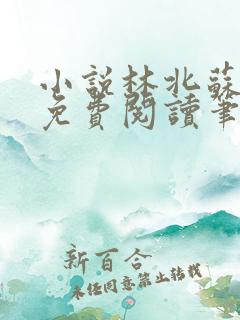 小說林北蘇
免費閱讀筆
新百合
未經同意禁止轉載